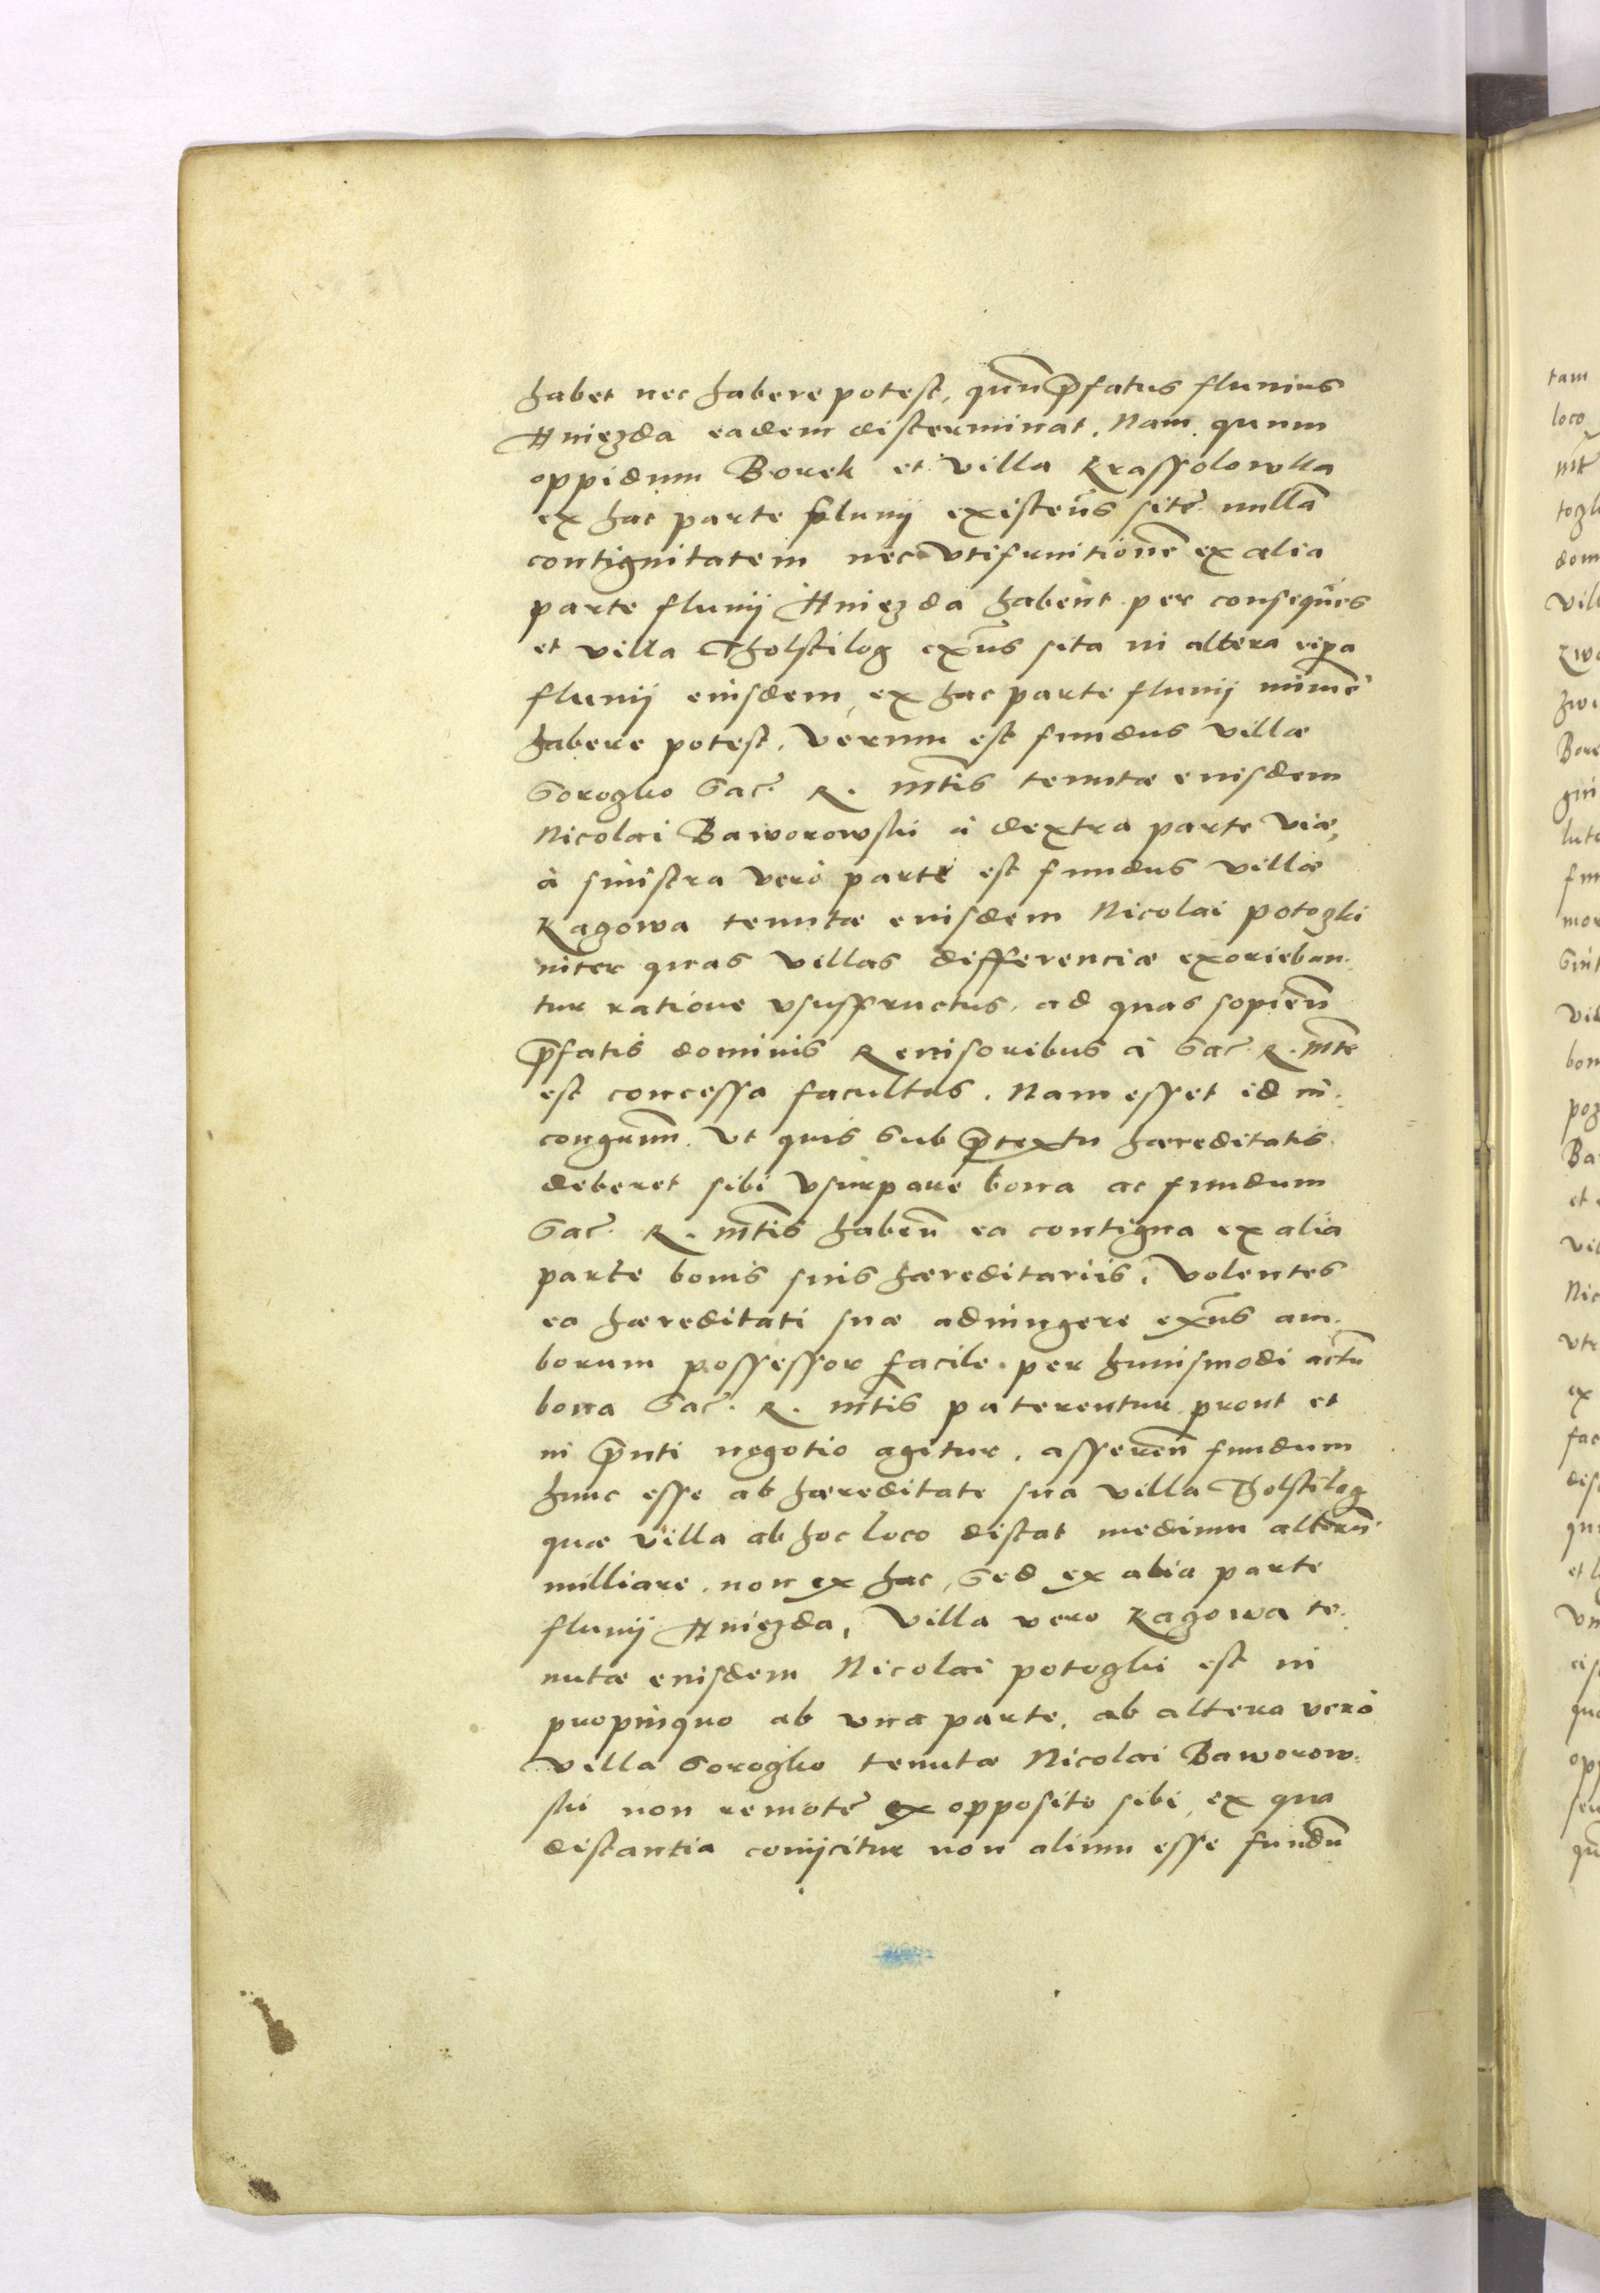 habet nec habere potest, quũ p̃fatus fluuius
Hniezda eadem disterminat. Nam quum
oppidum Borek et villa Krassolowka
ex hac parte fluuij existẽns sitẽ nullã
contiguitatem nec vtifruitionẽ ex alia
parte fluuij Hniezda habent per conseq̃ues
et villa Tholstilog ex̃ns sita in altera ripa
fluuij eiusdem, ex hac parte fluuij minimẽ
habere potest. Verum est fundus villæ
Soroczko Sac. R. Mtis tenutæ eiusdem
Nicolai Baworowski à dextra parte viæ,
à sinistra verò parte est fundus villæ
Ragowa tenutæ eiusdem Nicolai potozki
inter quas villas differenciæ exorieban-
tur ratione vsusfructus. ad quas sopiẽn
p̃fatis dominis Reuisoribus à Sac. R. Mte
est concessa facultas. Nam esset id in-
congruum. Vt quis sub p̃textu hæreditatis
deberet sibi vsurpare bona ac fundum
Sac. R. Mtis habẽn ea contigua ex alia
parte bonis suis hæreditariis. Volentes
ea hæreditati suæ adiungere ex̃ns am-
borum possessor facile. per huiusmodi actũ
bona Sac. R. Mtis paterentur prout et
in p̃nti negotio agitur. asserẽn fundum
hunc esse ab hæreditate sua villa Tholstilog
quæ villa ab hoc loco distat medium alterũ
milliare. non ex hac, sed ex alia parte
fluuij Hniezda, Villa vero Ragowa te-
nutæ eiusdem Nicolai potozki est in
propinquo ab vna parte, ab altera verò
villa Soroczko tenutæ Nicolai Baworow-
ski non remotẽ ex opposito sibi, ex qua
distantia conijcitur non alium esse fundũ